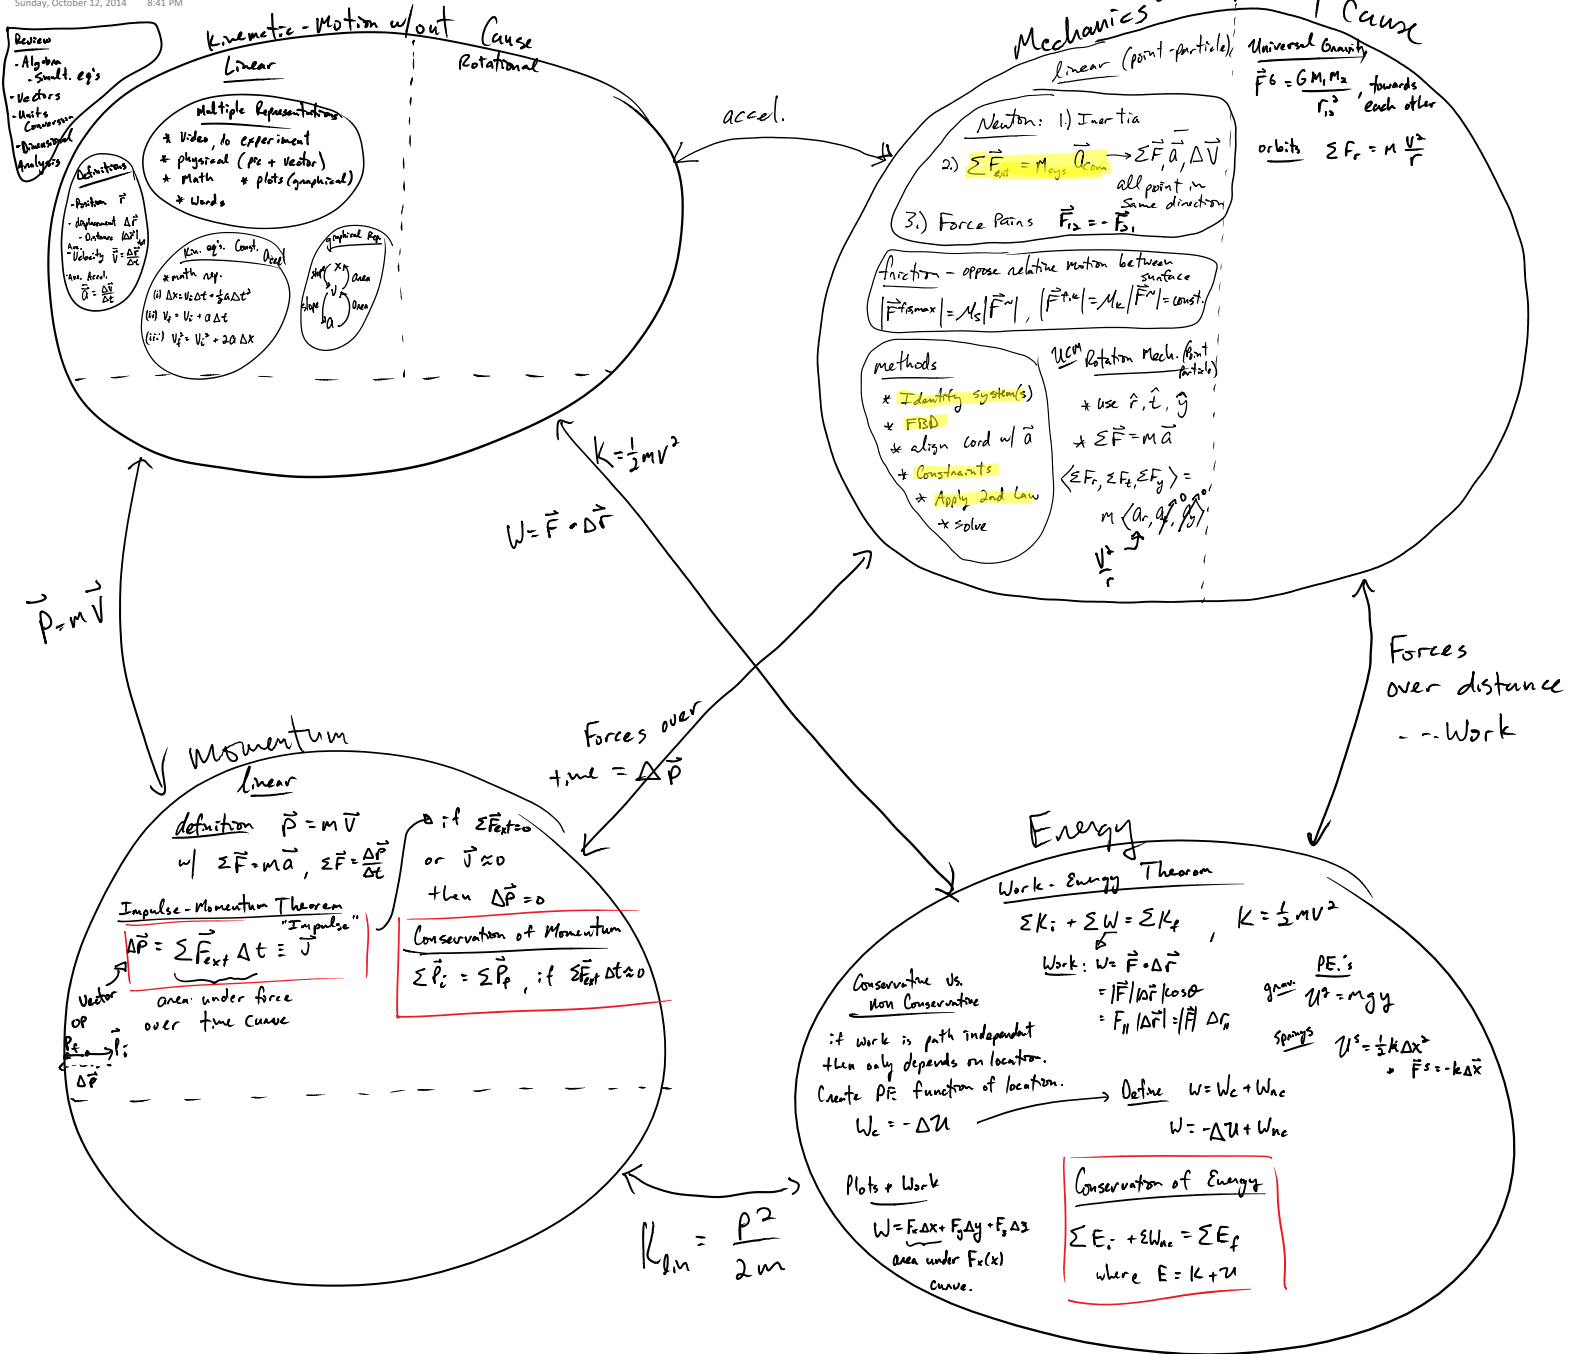 Sunday, October 12, 2014 8:41 PM
Review
- Algebra
- Simult. eq's
- Vectors
- Units Conversion
- Dimensional Analysis
Kinematic - Motion w/out Cause
Linear
Rotational
Multiple Representations
* Video, do experiment
* physical (pic + vector)
* Math * plots (graphical)
* Words
Definitions
- Position r⃗
- displacement Δr⃗
- Distance |Δr⃗|
Ave. Velocity v⃗ = Δr⃗/Δt
Ave. Accel.
a⃗ = Δv⃗/Δt
Kin. eq's. Const. accel
* math rep.
(i) Δx = ViΔt + ½aΔt²
(ii) Vf = Vi + aΔt
(iii) Vf² = Vi² + 2aΔx
graphical Rep.
slope x area
v
slope area
a
accel.
Mechanics - Cause
linear (point-particle)
Newton: 1.) Inertia
2.) ΣF⃗ext = Msys a⃗com → ΣF⃗, a⃗, ΔV⃗
all point in
same direction
3.) Force Pairs F⃗12 = -F⃗21
friction - oppose relative motion between
surface
|F⃗ fs,max| = μs|F⃗ᴺ|, |F⃗ f,k| = μk|F⃗ᴺ| = const.
methods
* Identify system(s)
* FBD
* align cord w/ a⃗
* Constraints
* Apply 2nd Law
* solve
UCM Rotation Mech. (Point particle)
* use r̂, t̂, ŷ
* ΣF⃗ = ma⃗
⟨ΣFr, ΣFt, ΣFy⟩ =
m⟨ar, at, ay⟩
0 0
V²/r
Universal Gravity
F⃗ᴳ = GM1M2/r12², towards
each other
orbits ΣFr = M V²/r
K = ½mv²
W = F⃗ • Δr⃗
P⃗ = mV⃗
Forces over
time = ΔP⃗
Forces
over distance
--- Work
Momentum
linear
definition P⃗ = mV⃗
w/ ΣF⃗ = ma⃗, ΣF⃗ = ΔP⃗/Δt
Impulse-Momentum Theorem
"Impulse"
ΔP⃗ = ΣF⃗ext Δt ≡ J⃗
area under force
over time curve
vector
op
Pf Pi
ΔP⃗
if ΣF⃗ext=0
or J⃗ ≈ 0
then ΔP⃗ = 0
Conservation of Momentum
ΣP⃗i = ΣP⃗f, if ΣF⃗ext Δt ≈ 0
Klin = P²/2m
Energy
Work - Energy Theorem
ΣKi + ΣW = ΣKf, K = ½mV²
Work: W = F⃗ • Δr⃗
= |F⃗||Δr⃗|cosθ
= F|| |Δr⃗| = |F⃗| Δr||
Conservative vs.
non Conservative
if work is path independent
then only depends on location.
Create PE function of location.
Wc = -ΔU
Define W = Wc + Wnc
W = -ΔU + Wnc
PE.'s
grav. Uᵍ = mgy
springs Uˢ = ½kΔx²
F⃗ˢ = -kΔx⃗
Plots + Work
W = FxΔx + FyΔy + FzΔz
area under Fx(x)
curve.
Conservation of Energy
ΣEi + ΣWnc = ΣEf
where E = K + U